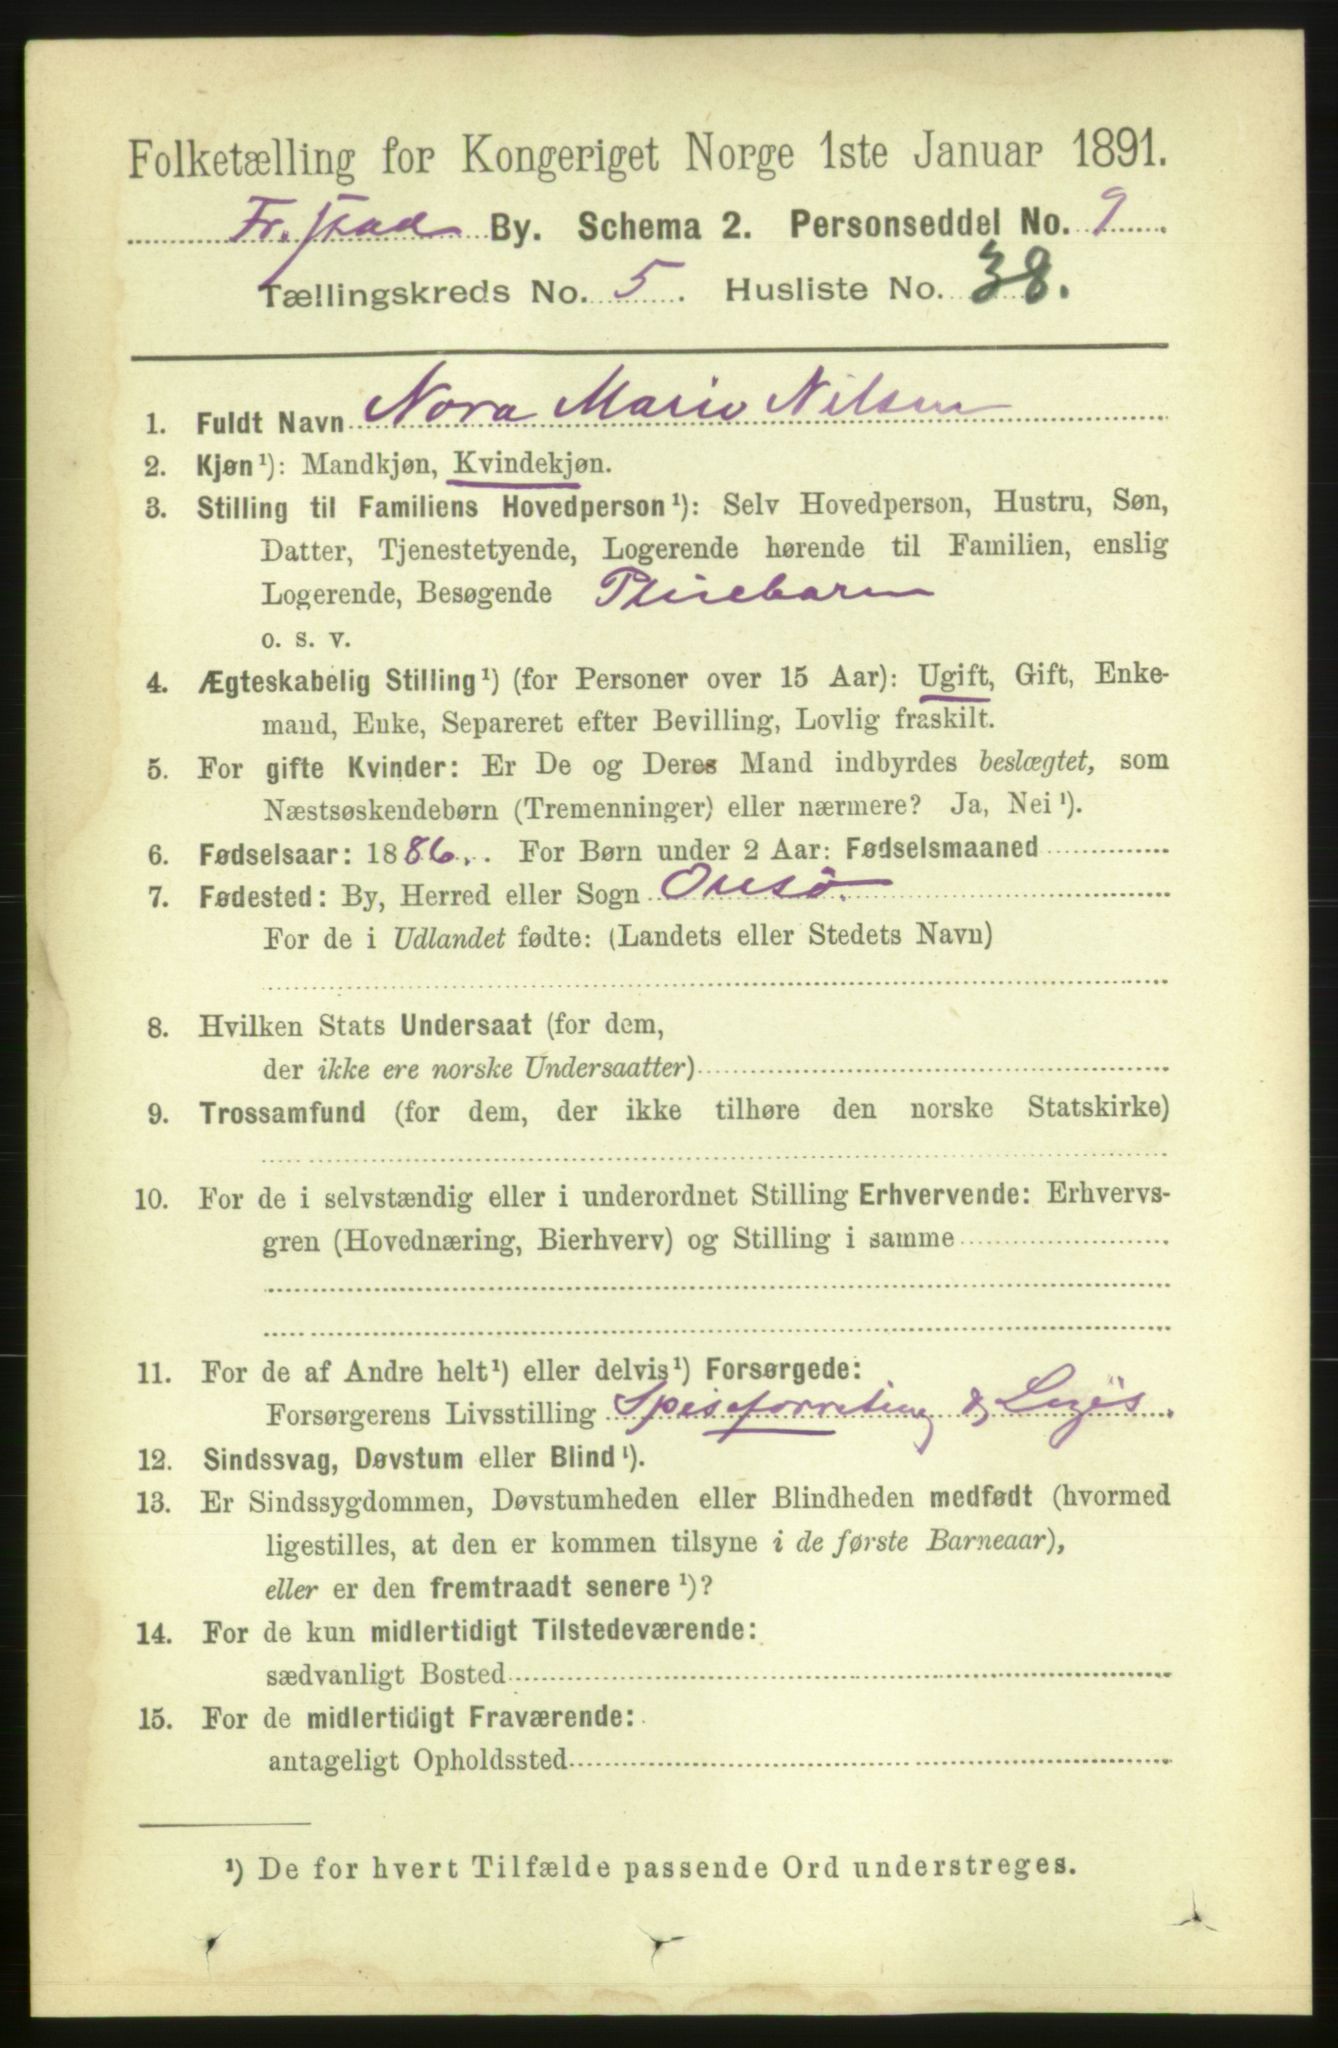 Folketælling for Kongeriget Norge 1ste Januar 1891.
Fr.stad By. Schema 2. Personseddel No. 9
Tællingskreds No. 5. Husliste No. 38.
1. Fuldt Navn Nora Marie Nilsen
2. Kjøn¹): Mandkjøn, Kvindekjøn.
3. Stilling til Familiens Hovedperson¹): Selv Hovedperson, Hustru, Søn,
Datter, Tjenestetyende, Logerende hørende til Familien, enslig
Logerende, Besøgende Pleiebarn
o. s. v.
4. Ægteskabelig Stilling¹) (for Personer over 15 Aar): Ugift, Gift, Enke-
mand, Enke, Separeret efter Bevilling, Lovlig fraskilt.
5. For gifte Kvinder: Er De og Deres Mand indbyrdes beslægtet, som
Næstsøskendebørn (Tremenninger) eller nærmere? Ja, Nei¹).
6. Fødselsaar: 1886. For Børn under 2 Aar: Fødselsmaaned
7. Fødested: By, Herred eller Sogn Onsö.
For de i Udlandet fødte: (Landets eller Stedets Navn)
8. Hvilken Stats Undersaat (for dem,
der ikke ere norske Undersaatter)
9. Trossamfund (for dem, der ikke tilhøre den norske Statskirke)
10. For de i selvstændig eller i underordnet Stilling Erhvervende: Erhvervs-
gren (Hovednæring, Bierhverv) og Stilling i samme
11. For de af Andre helt¹) eller delvis¹) Forsørgede:
Forsørgerens Livsstilling Spiseforretning & Logis.
12. Sindssvag, Døvstum eller Blind¹).
13. Er Sindssygdommen, Døvstumheden eller Blindheden medfødt (hvormed
ligestilles, at den er kommen tilsyne i de første Barneaar),
eller er den fremtraadt senere¹)?
14. For de kun midlertidigt Tilstedeværende:
sædvanligt Bosted
15. For de midlertidigt Fraværende:
antageligt Opholdssted
¹) De for hvert Tilfælde passende Ord understreges.